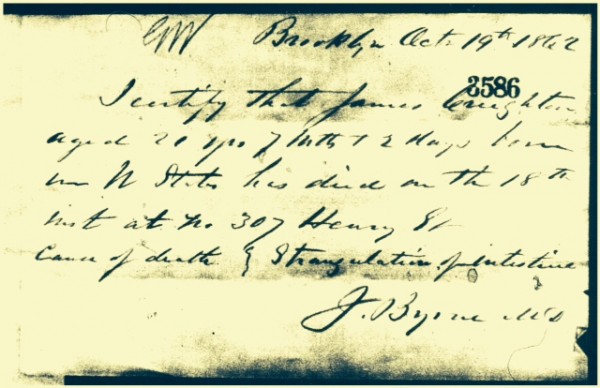 GW Brooklyn Oct. 19th 1862
3586
I certify that James Creighton
aged 21 yrs 7 mths & 2 days born
in U States has died on the 18th
inst at No 307 Henry St
Cause of death } Strangulation of intestine
J. Byrne MD